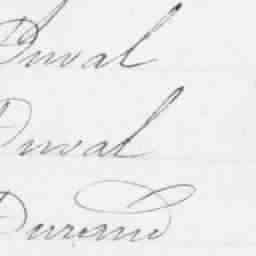 Duval
Duval
Durand